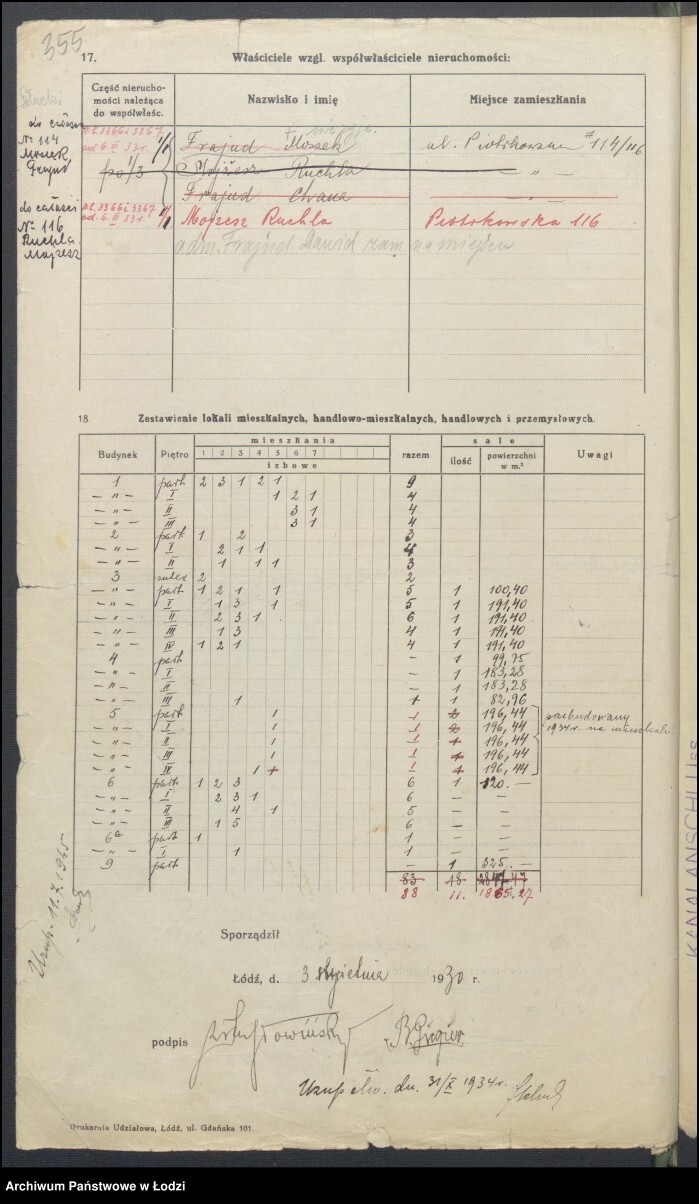 355
17. Właściciele wzgl. współwłaściciele nieruchomości:
Część nierucho-
mości należąca
do współwłaśc.
Nazwisko i imię
Miejsce zamieszkania
do całości
№ 114
Moszek
Frajnd
1/1 Frajnd Moszek ul. Piotrkowska 114/116
po 1/3 Mojżesz Ruchla — " —
Frajnd Chana — " —
do całości
№ 116
Ruchla
Mojżesz
1/1 Mojżesz Ruchla Piotrkowska 116
adm. Frajnd Dawid zam na miejscu
18. Zestawienie lokali mieszkalnych, handlowo-mieszkalnych, handlowych i przemysłowych.
Budynek Piętro mieszkania razem sale Uwagi
1 2 3 4 5 6 7 ilość powierzchni w m.²
izbowe
1 part 2 3 1 2 1 9
— " — I 1 2 1 4
— " — II 3 1 4
— " — III 3 1 4
2 part 1 2 3
— " — I 2 1 1 4
— " — II 1 1 1 3
3 suter 2 2
— " — part 1 2 1 1 5 1 100,40
— " — I 1 3 1 5 1 191,40
— " — II 2 3 1 6 1 191,40
— " — III 1 3 4 1 191,40
— " — IV 1 2 1 4 1 191,40
4 part — 1 99,75
— " — I — 1 183,28
— " — II — 1 183,28
— " — III 1 1 1 82,96
5 part 1 1 2 196,44 przebudowany
— " — I 1 1 2 196,44 1934 r. na mieszkalny
— " — II 1 1 1 196,44
— " — III 1 1 1 196,44
— " — IV 1 1 1 1 196,44
6 part 1 2 3 6 1 120.—
— " — I 2 3 1 6 — —
— " — II 4 1 5 — —
— " — III 1 5 6 — —
6a part 1 1 — —
— " — I 1 1 — —
9 part — 1 325.—
83 18 2847,47
88 11. 1865,27
Uzup. 11.7.1935
Sporządził
Łódź, d. 3 kwietnia 1930 r.
podpis
Uzup dn. 31/X 1934 r.
Drukarnia Udziałowa, Łódź, ul. Gdańska 101.
KANALANSCHLUSS
Archiwum Państwowe w Łodzi